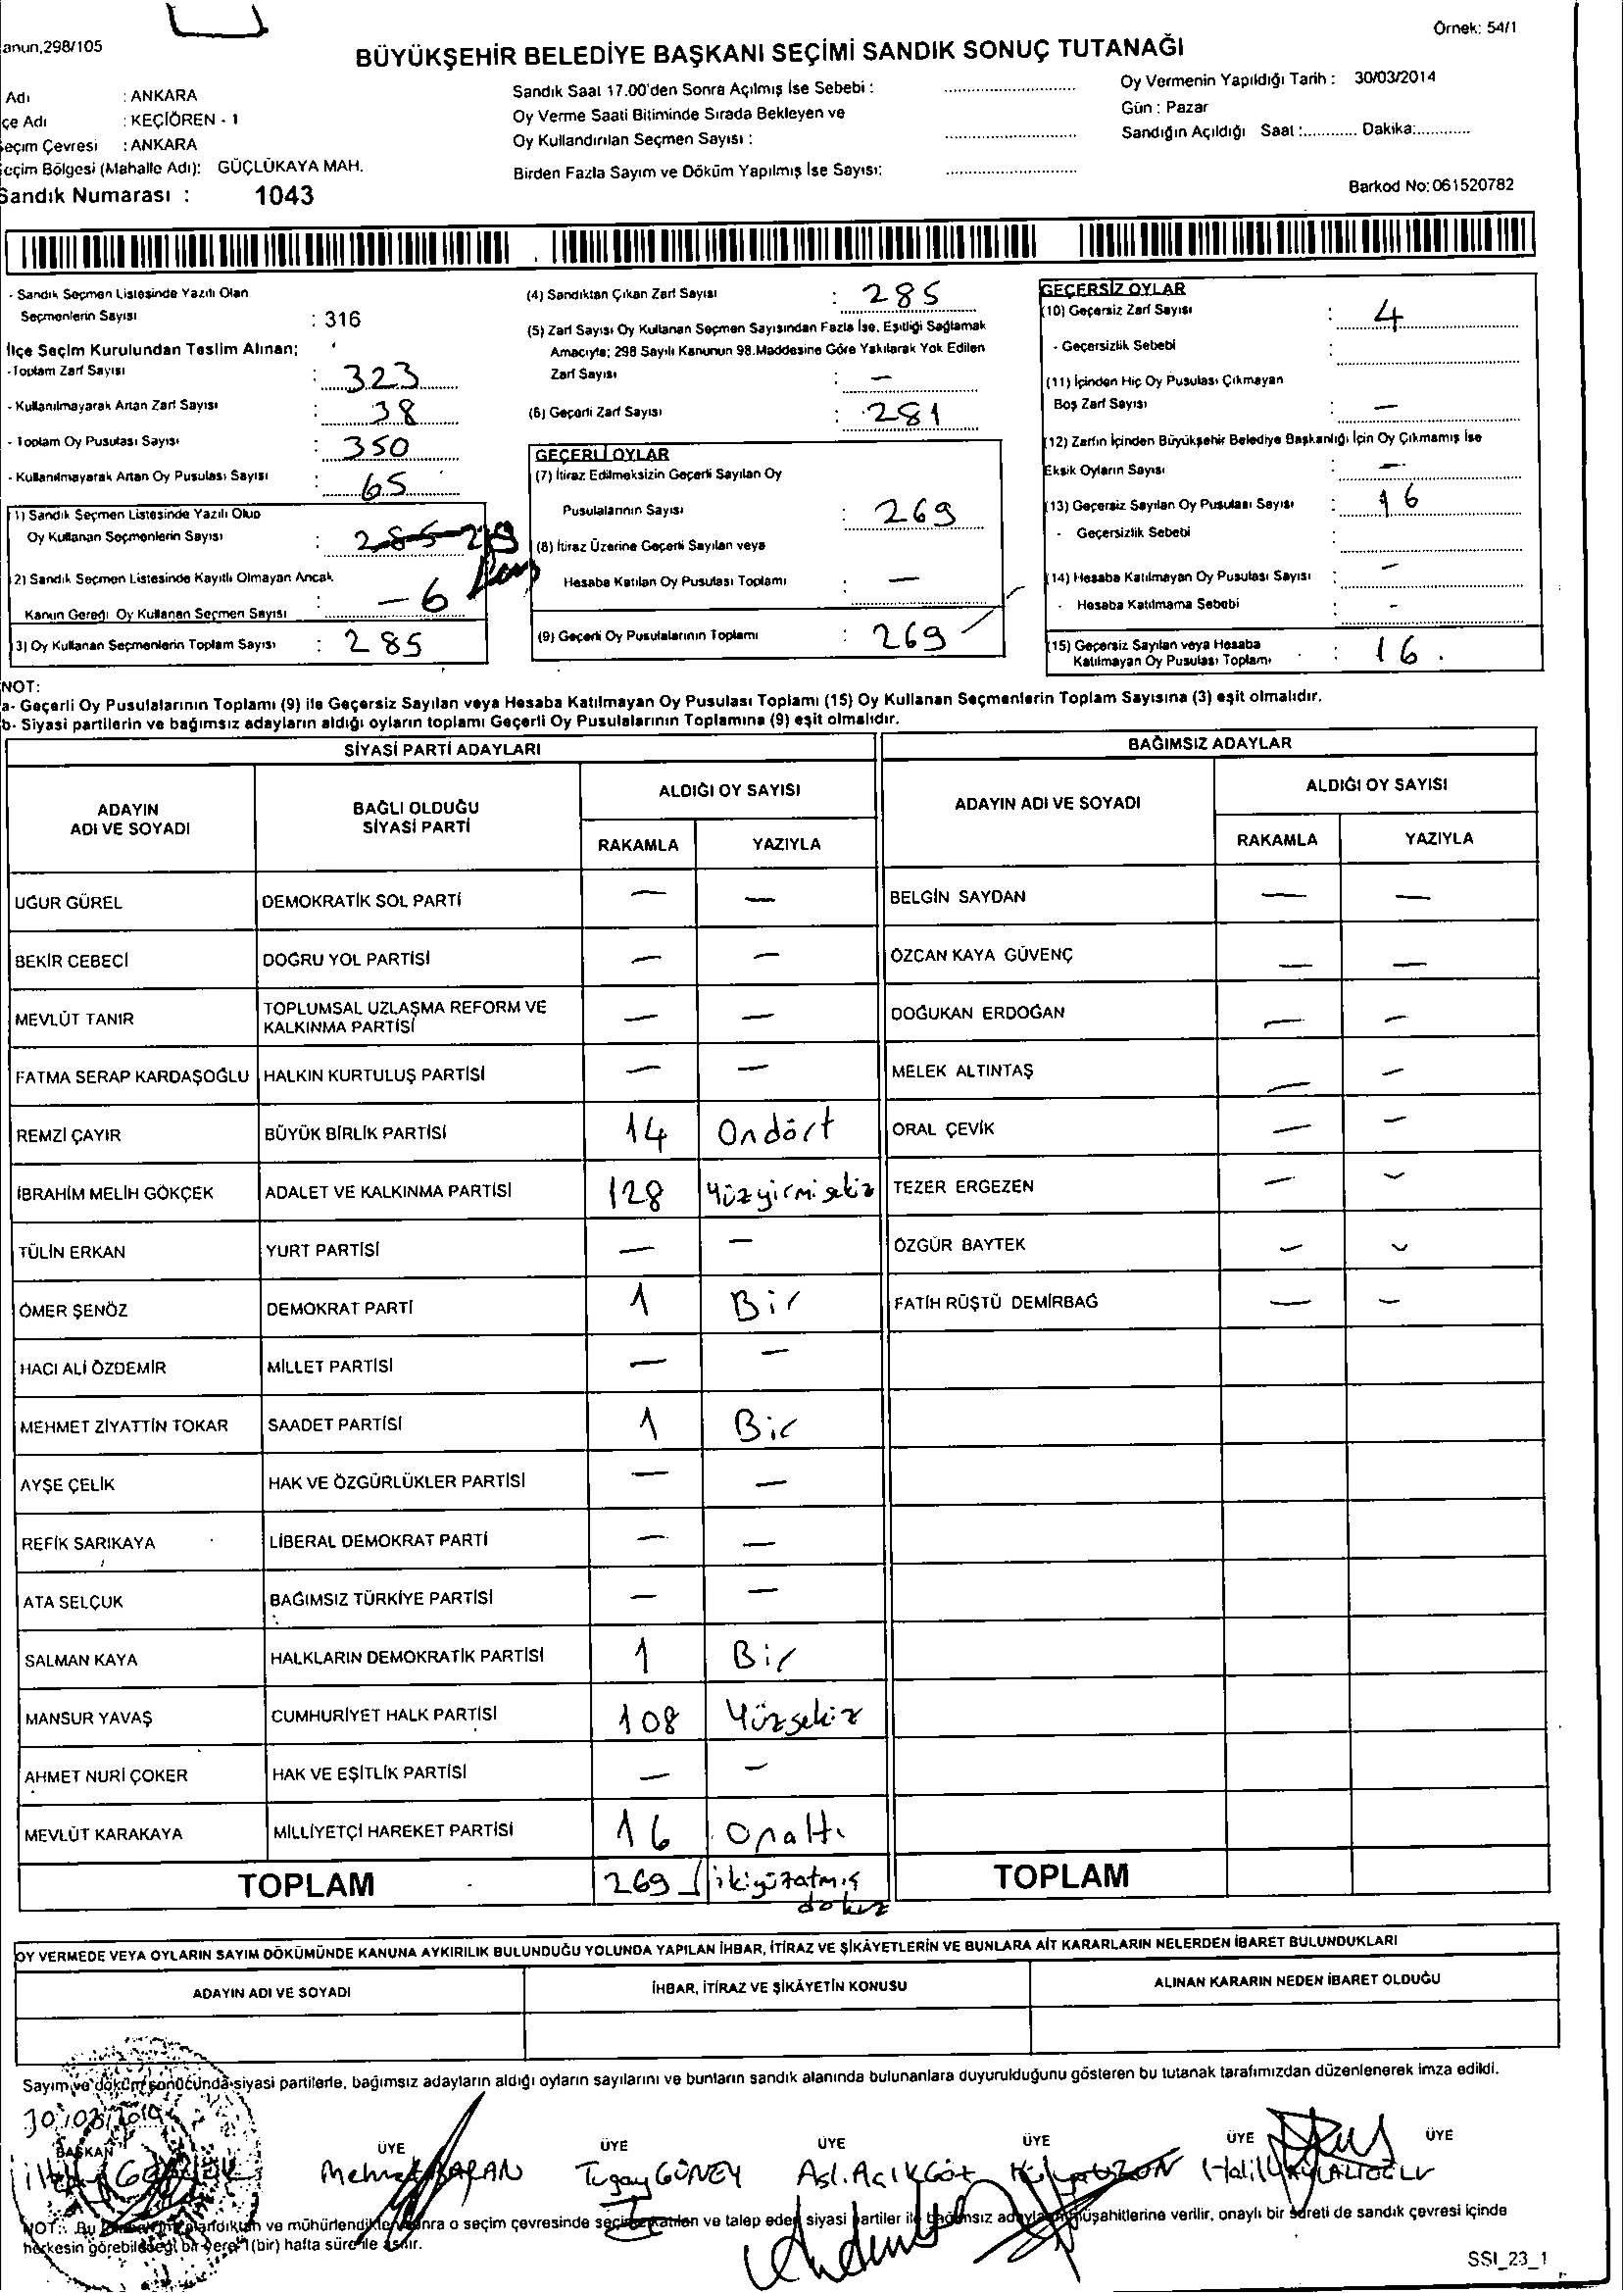 Örnek: 54/1
anun,298/105
BÜYÜKŞEHİR BELEDİYE BAŞKANI SEÇİMİ SANDIK SONUÇ TUTANAĞI
Adı : ANKARA
çe Adı : KEÇİÖREN - 1
eçim Çevresi : ANKARA
eçim Bölgesi (Mahalle Adı): GÜÇLÜKAYA MAH.
Sandık Numarası : 1043
Sandık Saat 17.00'den Sonra Açılmış İse Sebebi :
Oy Verme Saati Bitiminde Sırada Bekleyen ve
Oy Kullandırılan Seçmen Sayısı :
Birden Fazla Sayım ve Döküm Yapılmış İse Sayısı:
Oy Vermenin Yapıldığı Tarih : 30/03/2014
Gün : Pazar
Sandığın Açıldığı Saat :............ Dakika:............
Barkod No: 061520782
- Sandık Seçmen Listesinde Yazılı Olan
Seçmenlerin Sayısı : 316
İlçe Seçim Kurulundan Teslim Alınan;
- Toplam Zarf Sayısı : 323
- Kullanılmayarak Artan Zarf Sayısı : 38
- Toplam Oy Pusulası Sayısı : 350
- Kullanılmayarak Artan Oy Pusulası Sayısı : 65
1) Sandık Seçmen Listesinde Yazılı Olup
Oy Kullanan Seçmenlerin Sayısı : 285 279
2) Sandık Seçmen Listesinde Kayıtlı Olmayan Ancak
Kanun Gereği Oy Kullanan Seçmen Sayısı : - 6
3) Oy Kullanan Seçmenlerin Toplam Sayısı : 285
(4) Sandıktan Çıkan Zarf Sayısı : 285
(5) Zarf Sayısı Oy Kullanan Seçmen Sayısından Fazla İse, Eşitliği Sağlamak
Amacıyla; 298 Sayılı Kanunun 98.Maddesine Göre Yakılarak Yok Edilen
Zarf Sayısı : —
(6) Geçerli Zarf Sayısı : 281
GEÇERLİ OYLAR
(7) İtiraz Edilmeksizin Geçerli Sayılan Oy
Pusulalarının Sayısı : 269
(8) İtiraz Üzerine Geçerli Sayılan veya
Hesaba Katılan Oy Pusulası Toplamı : —
(9) Geçerli Oy Pusulalarının Toplamı : 269
GEÇERSİZ OYLAR
(10) Geçersiz Zarf Sayısı : 4
- Geçersizlik Sebebi :
(11) İçinden Hiç Oy Pusulası Çıkmayan
Boş Zarf Sayısı : —
(12) Zarfın İçinden Büyükşehir Belediye Başkanlığı İçin Oy Çıkmamış İse
Eksik Oyların Sayısı : —
(13) Geçersiz Sayılan Oy Pusulası Sayısı : 16
- Geçersizlik Sebebi :
(14) Hesaba Katılmayan Oy Pusulası Sayısı : —
- Hesaba Katılmama Sebebi : -
(15) Geçersiz Sayılan veya Hesaba
Katılmayan Oy Pusulası Toplamı : 16.
NOT:
a- Geçerli Oy Pusulalarının Toplamı (9) ile Geçersiz Sayılan veya Hesaba Katılmayan Oy Pusulası Toplamı (15) Oy Kullanan Seçmenlerin Toplam Sayısına (3) eşit olmalıdır.
b- Siyasi partilerin ve bağımsız adayların aldığı oyların toplamı Geçerli Oy Pusulalarının Toplamına (9) eşit olmalıdır.
SİYASİ PARTİ ADAYLARI BAĞIMSIZ ADAYLAR
ADAYIN ADI VE SOYADI BAĞLI OLDUĞU SİYASİ PARTİ ALDIĞI OY SAYISI ADAYIN ADI VE SOYADI ALDIĞI OY SAYISI
RAKAMLA YAZIYLA RAKAMLA YAZIYLA
UĞUR GÜREL DEMOKRATİK SOL PARTİ — — BELGİN SAYDAN — —
BEKİR CEBECİ DOĞRU YOL PARTİSİ — — ÖZCAN KAYA GÜVENÇ — —
MEVLÜT TANIR TOPLUMSAL UZLAŞMA REFORM VE KALKINMA PARTİSİ — — DOĞUKAN ERDOĞAN — —
FATMA SERAP KARDAŞOĞLU HALKIN KURTULUŞ PARTİSİ — — MELEK ALTINTAŞ — —
REMZİ ÇAYIR BÜYÜK BİRLİK PARTİSİ 14 Ondört ORAL ÇEVİK — —
İBRAHİM MELİH GÖKÇEK ADALET VE KALKINMA PARTİSİ 128 Yüzyirmisekiz TEZER ERGEZEN — —
TÜLİN ERKAN YURT PARTİSİ — — ÖZGÜR BAYTEK — —
ÖMER ŞENÖZ DEMOKRAT PARTİ 1 Bir FATİH RÜŞTÜ DEMİRBAĞ — —
HACI ALİ ÖZDEMİR MİLLET PARTİSİ — —
MEHMET ZİYATTİN TOKAR SAADET PARTİSİ 1 Bir
AYŞE ÇELİK HAK VE ÖZGÜRLÜKLER PARTİSİ — —
REFİK SARIKAYA LİBERAL DEMOKRAT PARTİ — —
ATA SELÇUK BAĞIMSIZ TÜRKİYE PARTİSİ — —
SALMAN KAYA HALKLARIN DEMOKRATİK PARTİSİ 1 Bir
MANSUR YAVAŞ CUMHURİYET HALK PARTİSİ 108 Yüzsekiz
AHMET NURİ ÇOKER HAK VE EŞİTLİK PARTİSİ — —
MEVLÜT KARAKAYA MİLLİYETÇİ HAREKET PARTİSİ 16 Onaltı
TOPLAM 269 ikiyüzatmış dokuz TOPLAM
OY VERMEDE VEYA OYLARIN SAYIM DÖKÜMÜNDE KANUNA AYKIRILIK BULUNDUĞU YOLUNDA YAPILAN İHBAR, İTİRAZ VE ŞİKÂYETLERİN VE BUNLARA AİT KARARLARIN NELERDEN İBARET BULUNDUKLARI
ADAYIN ADI VE SOYADI İHBAR, İTİRAZ VE ŞİKÂYETİN KONUSU ALINAN KARARIN NEDEN İBARET OLDUĞU
Sayım ve döküm sonucunda siyasi partilerle, bağımsız adayların aldığı oyların sayılarını ve bunların sandık alanında bulunanlara duyurulduğunu gösteren bu tutanak tarafımızdan düzenlenerek imza edildi.
30/03/2014
BAŞKAN ÜYE ÜYE ÜYE ÜYE ÜYE ÜYE
Tugay GÜNEY Aslı AÇIKGÖZ
NOT: Bu ve mühürlendikten sonra o seçim çevresinde seçime katılan ve talep eden siyasi partiler ile bağımsız aday müşahitlerine verilir, onaylı bir sureti de sandık çevresi içinde
herkesin görebileceği bir yere 1(bir) hafta süre ile asılır.
SSI_23_1